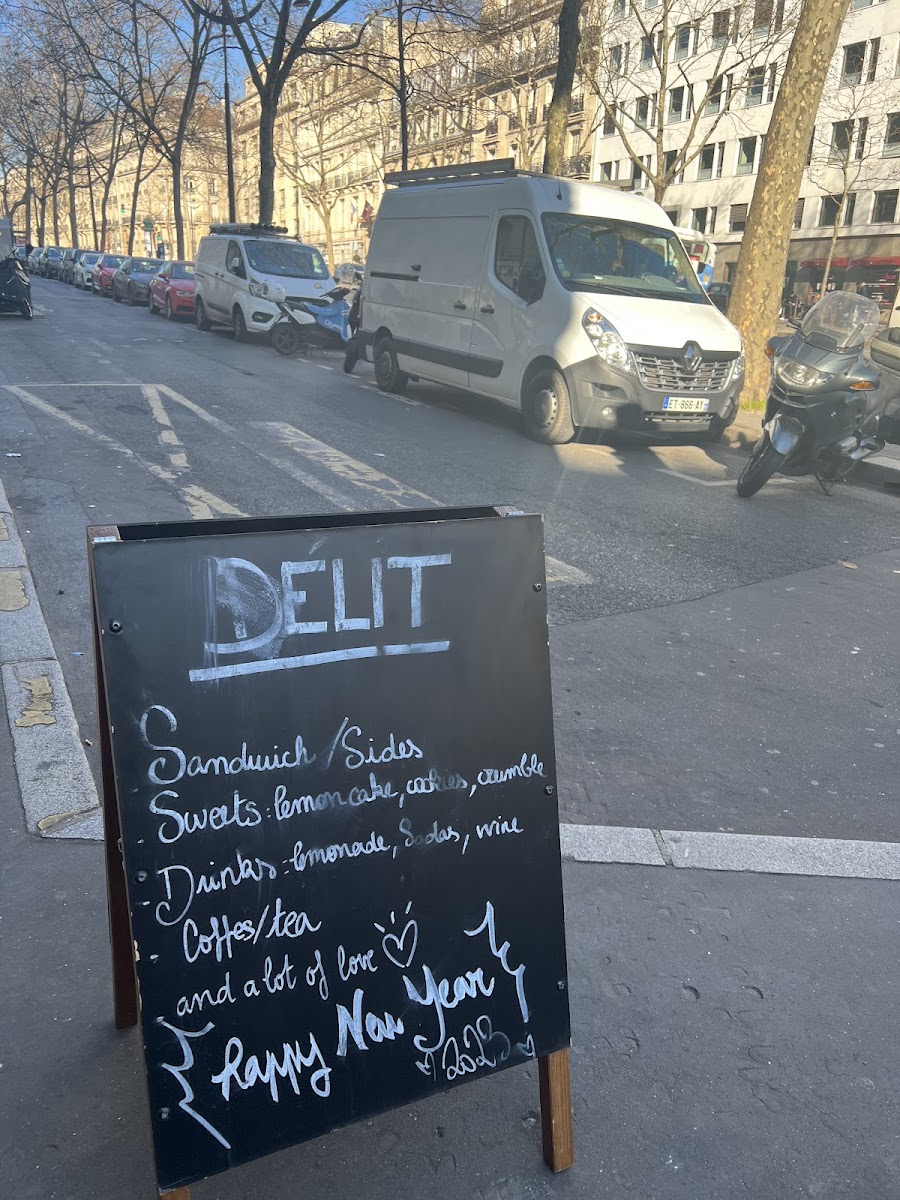 DÉLIT
Sandwich / Sides
Sweets : lemon cake, cookies, crumble
Drinks : lemonade, Sodas, wine
- Coffes/tea
and a lot of love
happy New Year
2023
ET-866-AY